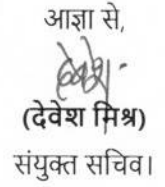 आज्ञा से,
देवेश
(देवेश मिश्र)
संयुक्त सचिव।